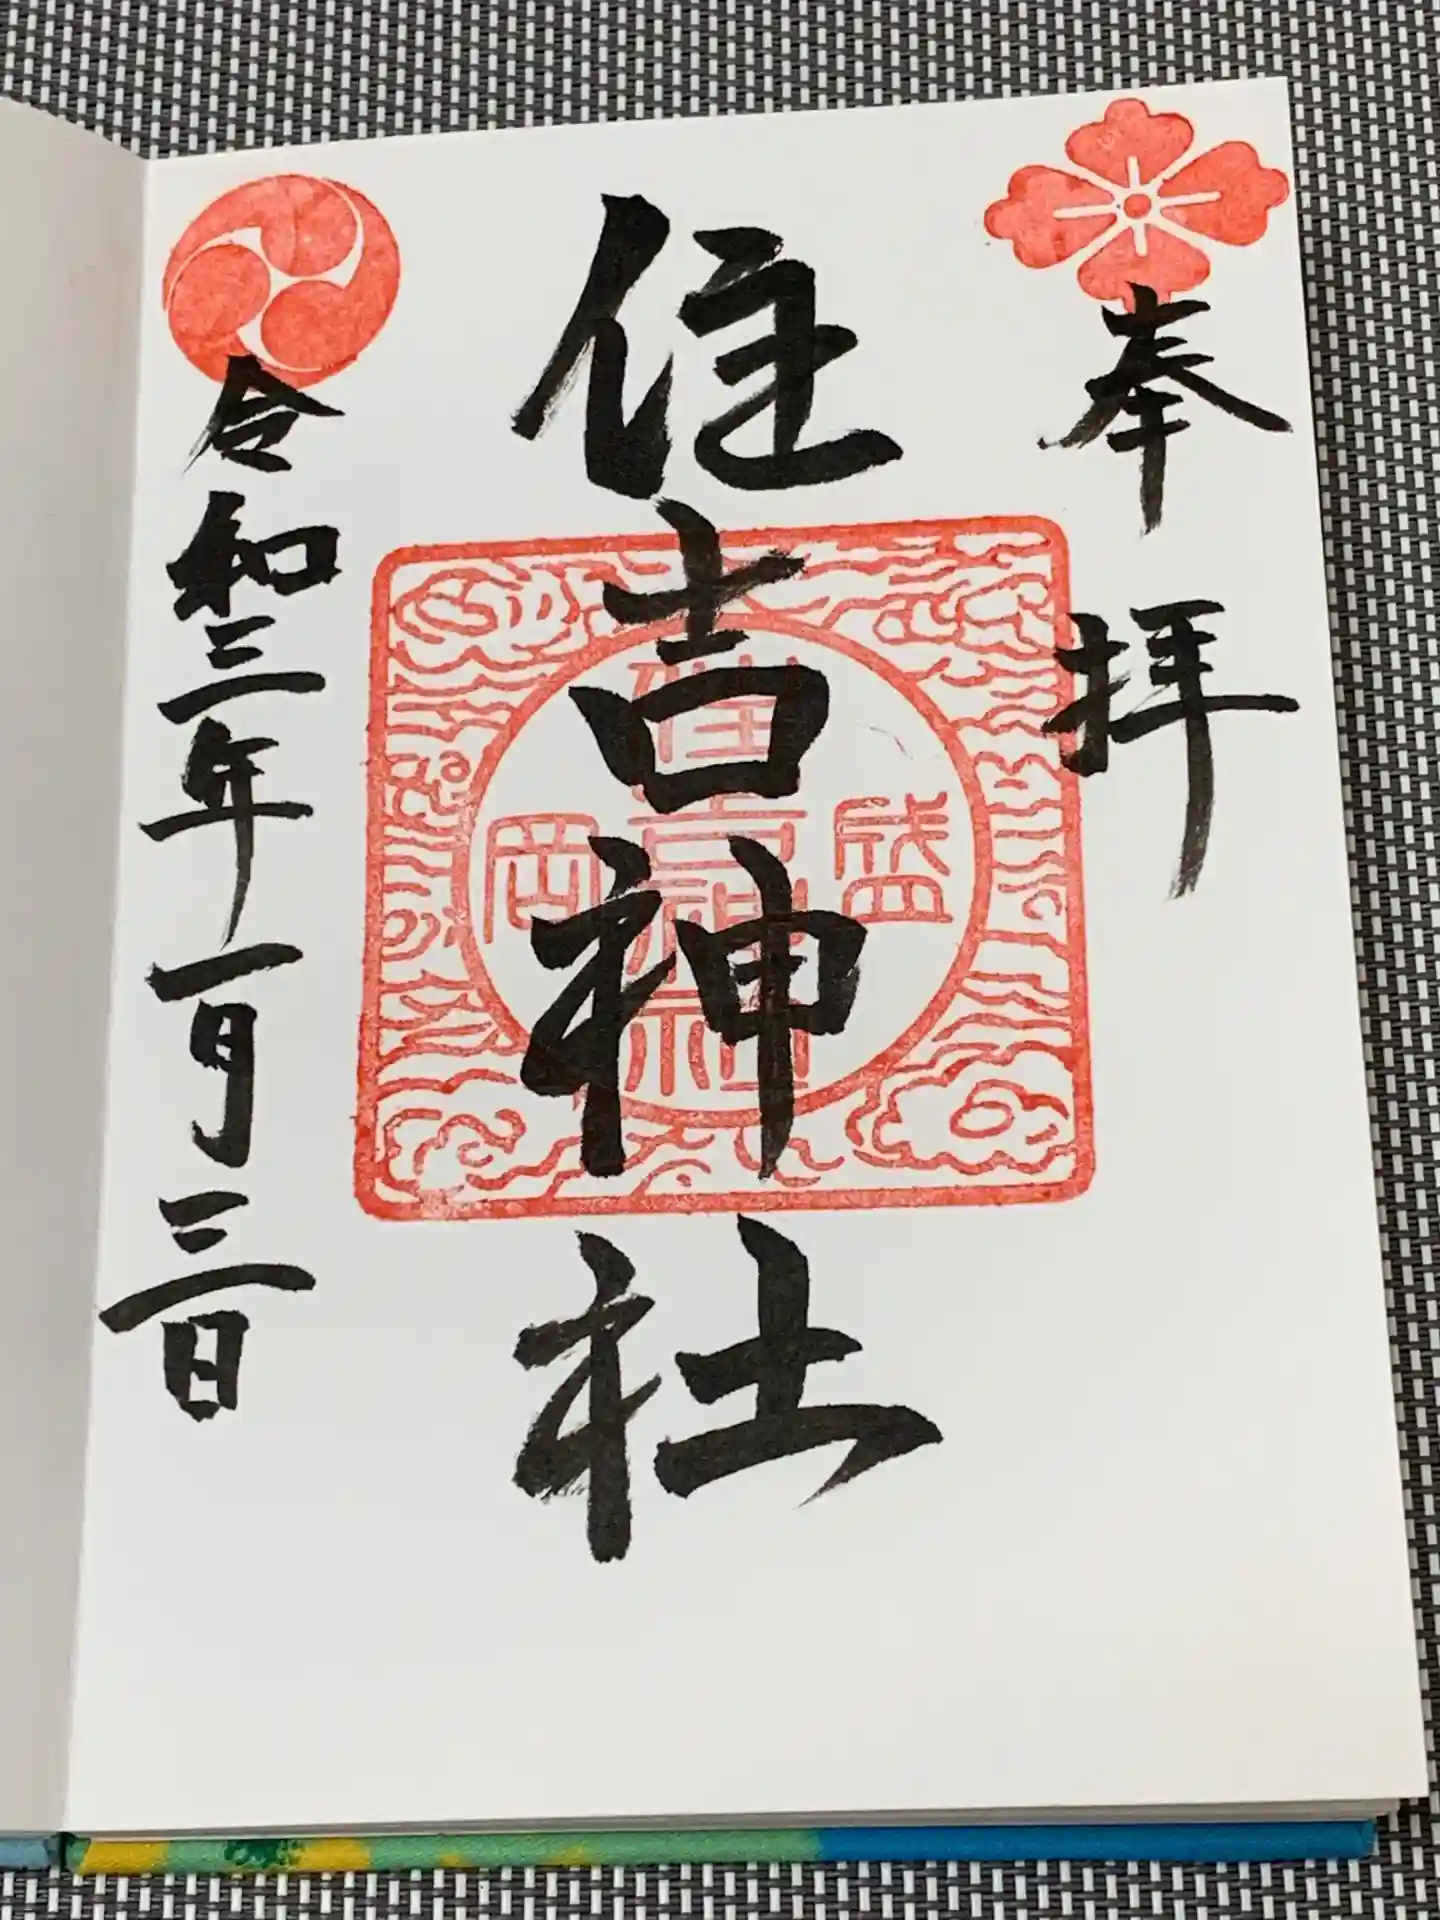 奉拝
住吉神社
盛岡
住吉神社
令和三年一月三日